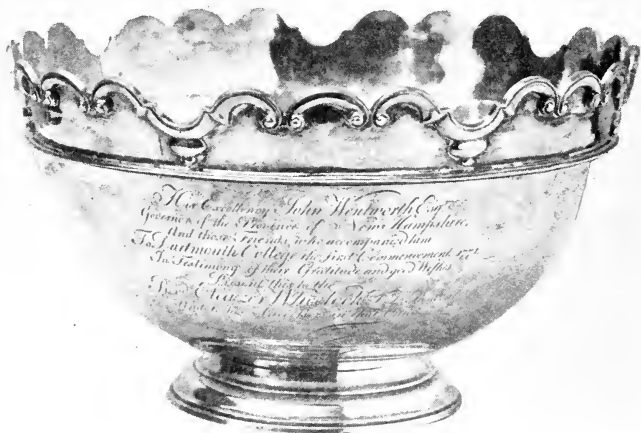 His Excellency John Wentworth Esqr
Governor of the Province of New Hampshire,
And those Friends who accompanied him
To Dartmouth College the first Commencement 1771
In Testimony of their Gratitude and good Wishes
Present this to the
Eleazer Wheelock